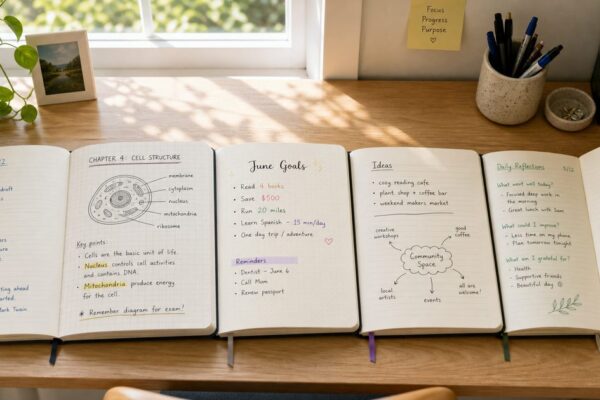 Focus
Progress
Purpose
♡
12
draft
ting ahead
arted.
Mark Twain
CHAPTER 4: CELL STRUCTURE
membrane
cytoplasm
nucleus
mitochondria
ribosome
Key points:
• Cells are the basic unit of life.
• Nucleus controls cell activities
and contains DNA.
• Mitochondria produce energy
for the cell.
* Remember diagram for exam!
June Goals
• Read 4 books
• Save $500
• Run 20 miles
• Learn Spanish - 15 min/day
• One day trip / adventure
Reminders
• Dentist - June 6
• Call Mom
• Renew passport
Ideas
• cozy reading cafe
• plant shop + coffee bar
• weekend makers market
creative
workshops
good
coffee
Community
Space
local
artists
events
all are
welcome!
Daily Reflections 5/12
What went well today?
- Focused deep work in
the morning
- Great lunch with Sam
What could I improve?
- Less time on my phone
- Plan tomorrow tonight
What am I grateful for?
- Health
- Supportive friends
- Beautiful day ☺